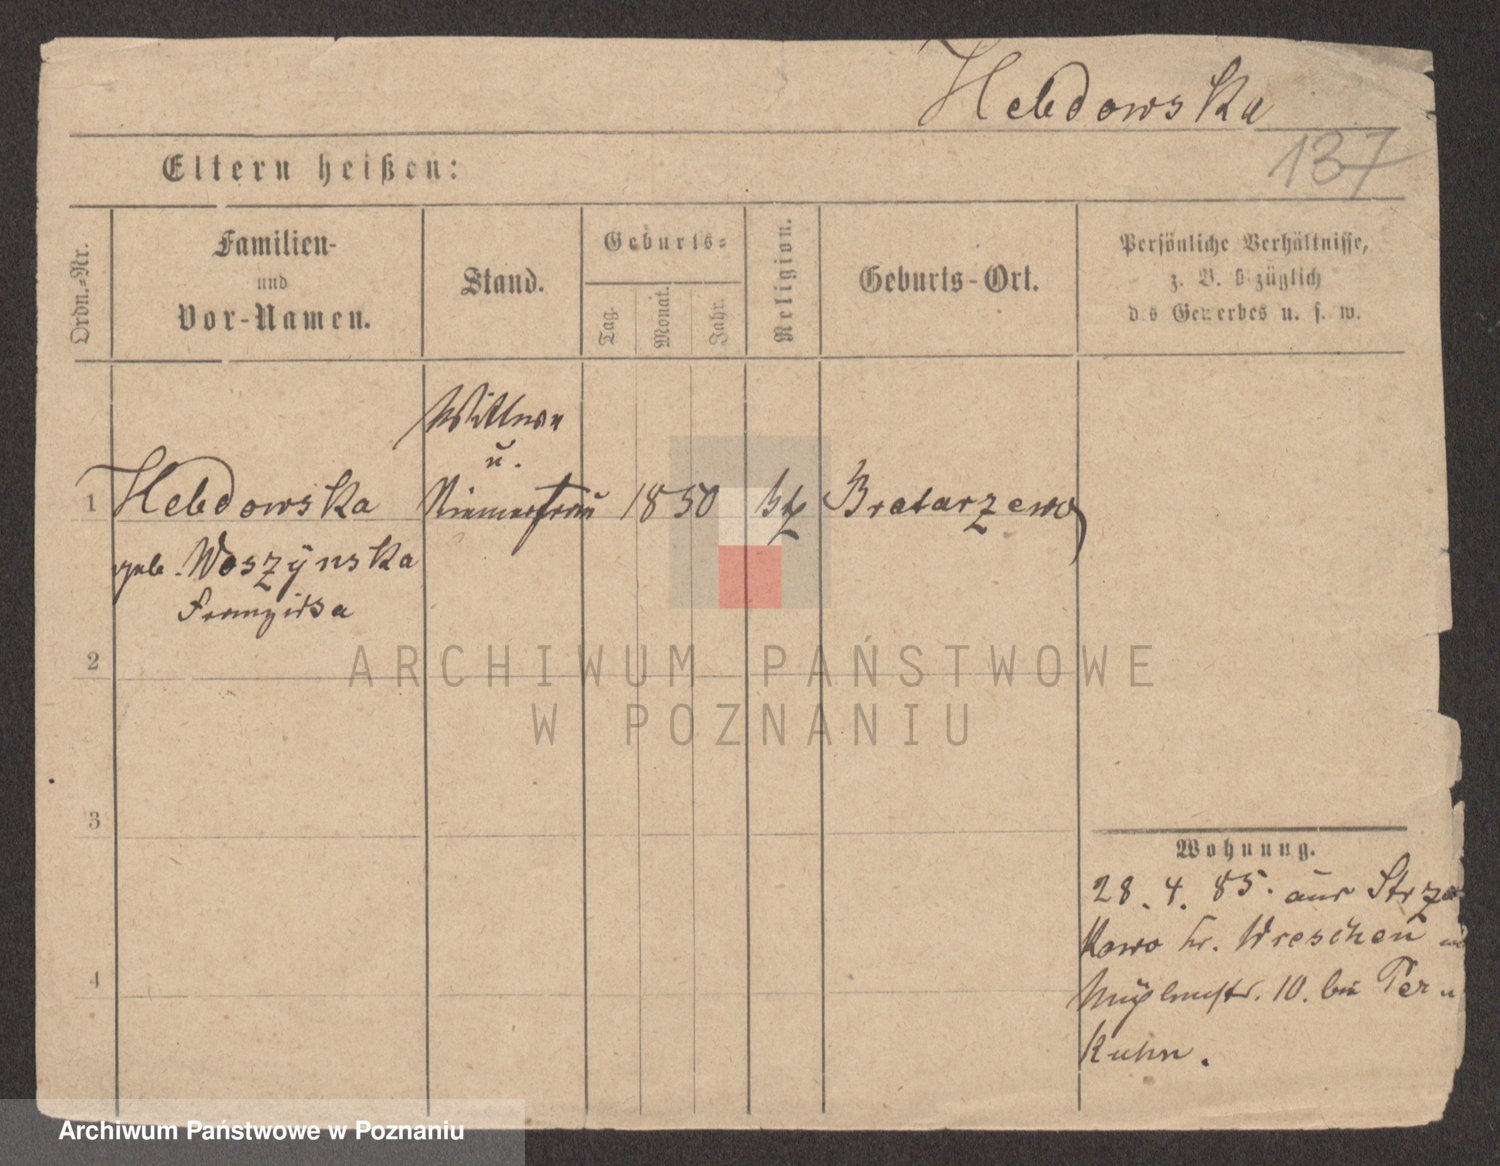 Hebdowska
137
Eltern heißen:
Ordn.-Nr.
Familien-
und
Vor-Namen.
Stand.
Geburts-
Tag.
Monat.
Jahr.
Religion.
Geburts-Ort.
Persönliche Verhältnisse,
z. B. bezüglich
des Gewerbes u. s. w.
Wittwe
u.
1 Hebdowska 1850 kth Bratarzewo
geb. Woszÿnska
Franziska
2
3
4
Wohnung.
28. 4. 85. aus Strzał
kowo Kr. Wreschen
Mühlenstr. 10. bei
Kuhn.
ARCHIWUM PAŃSTWOWE
W POZNANIU
Archiwum Państwowe w Poznaniu